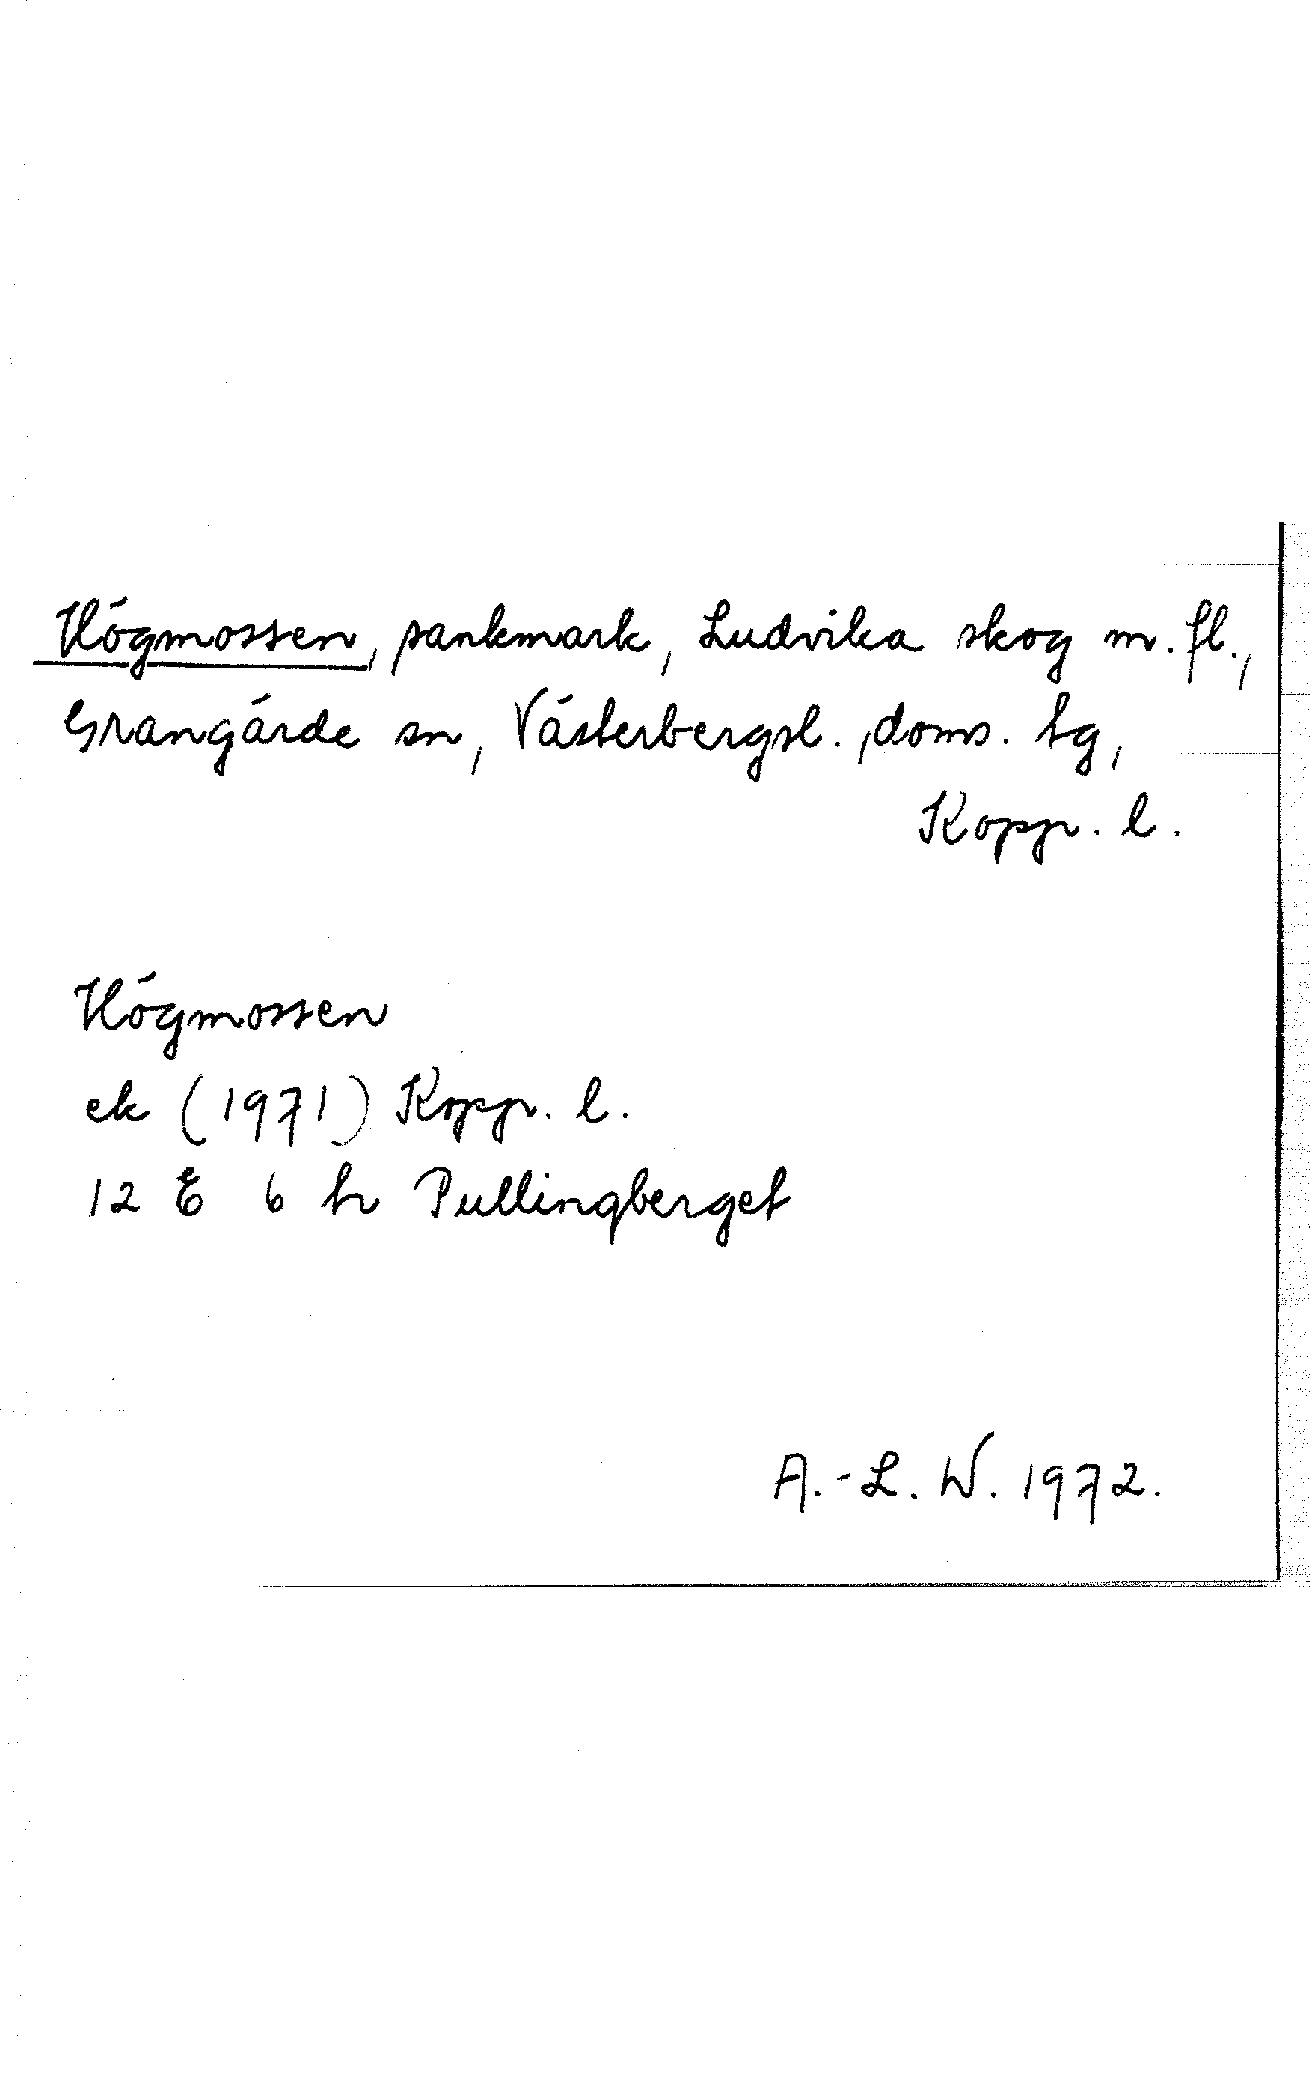 Högmossen, sankmark, Ludvika skog m. fl.,
Grangärde sn, Västerbergsl., doms. tg,
Kopp. l.
Högmossen
ek (1971) Kopp. l.
12 E 6 h Pullingberget
A.-L. W. 1972.